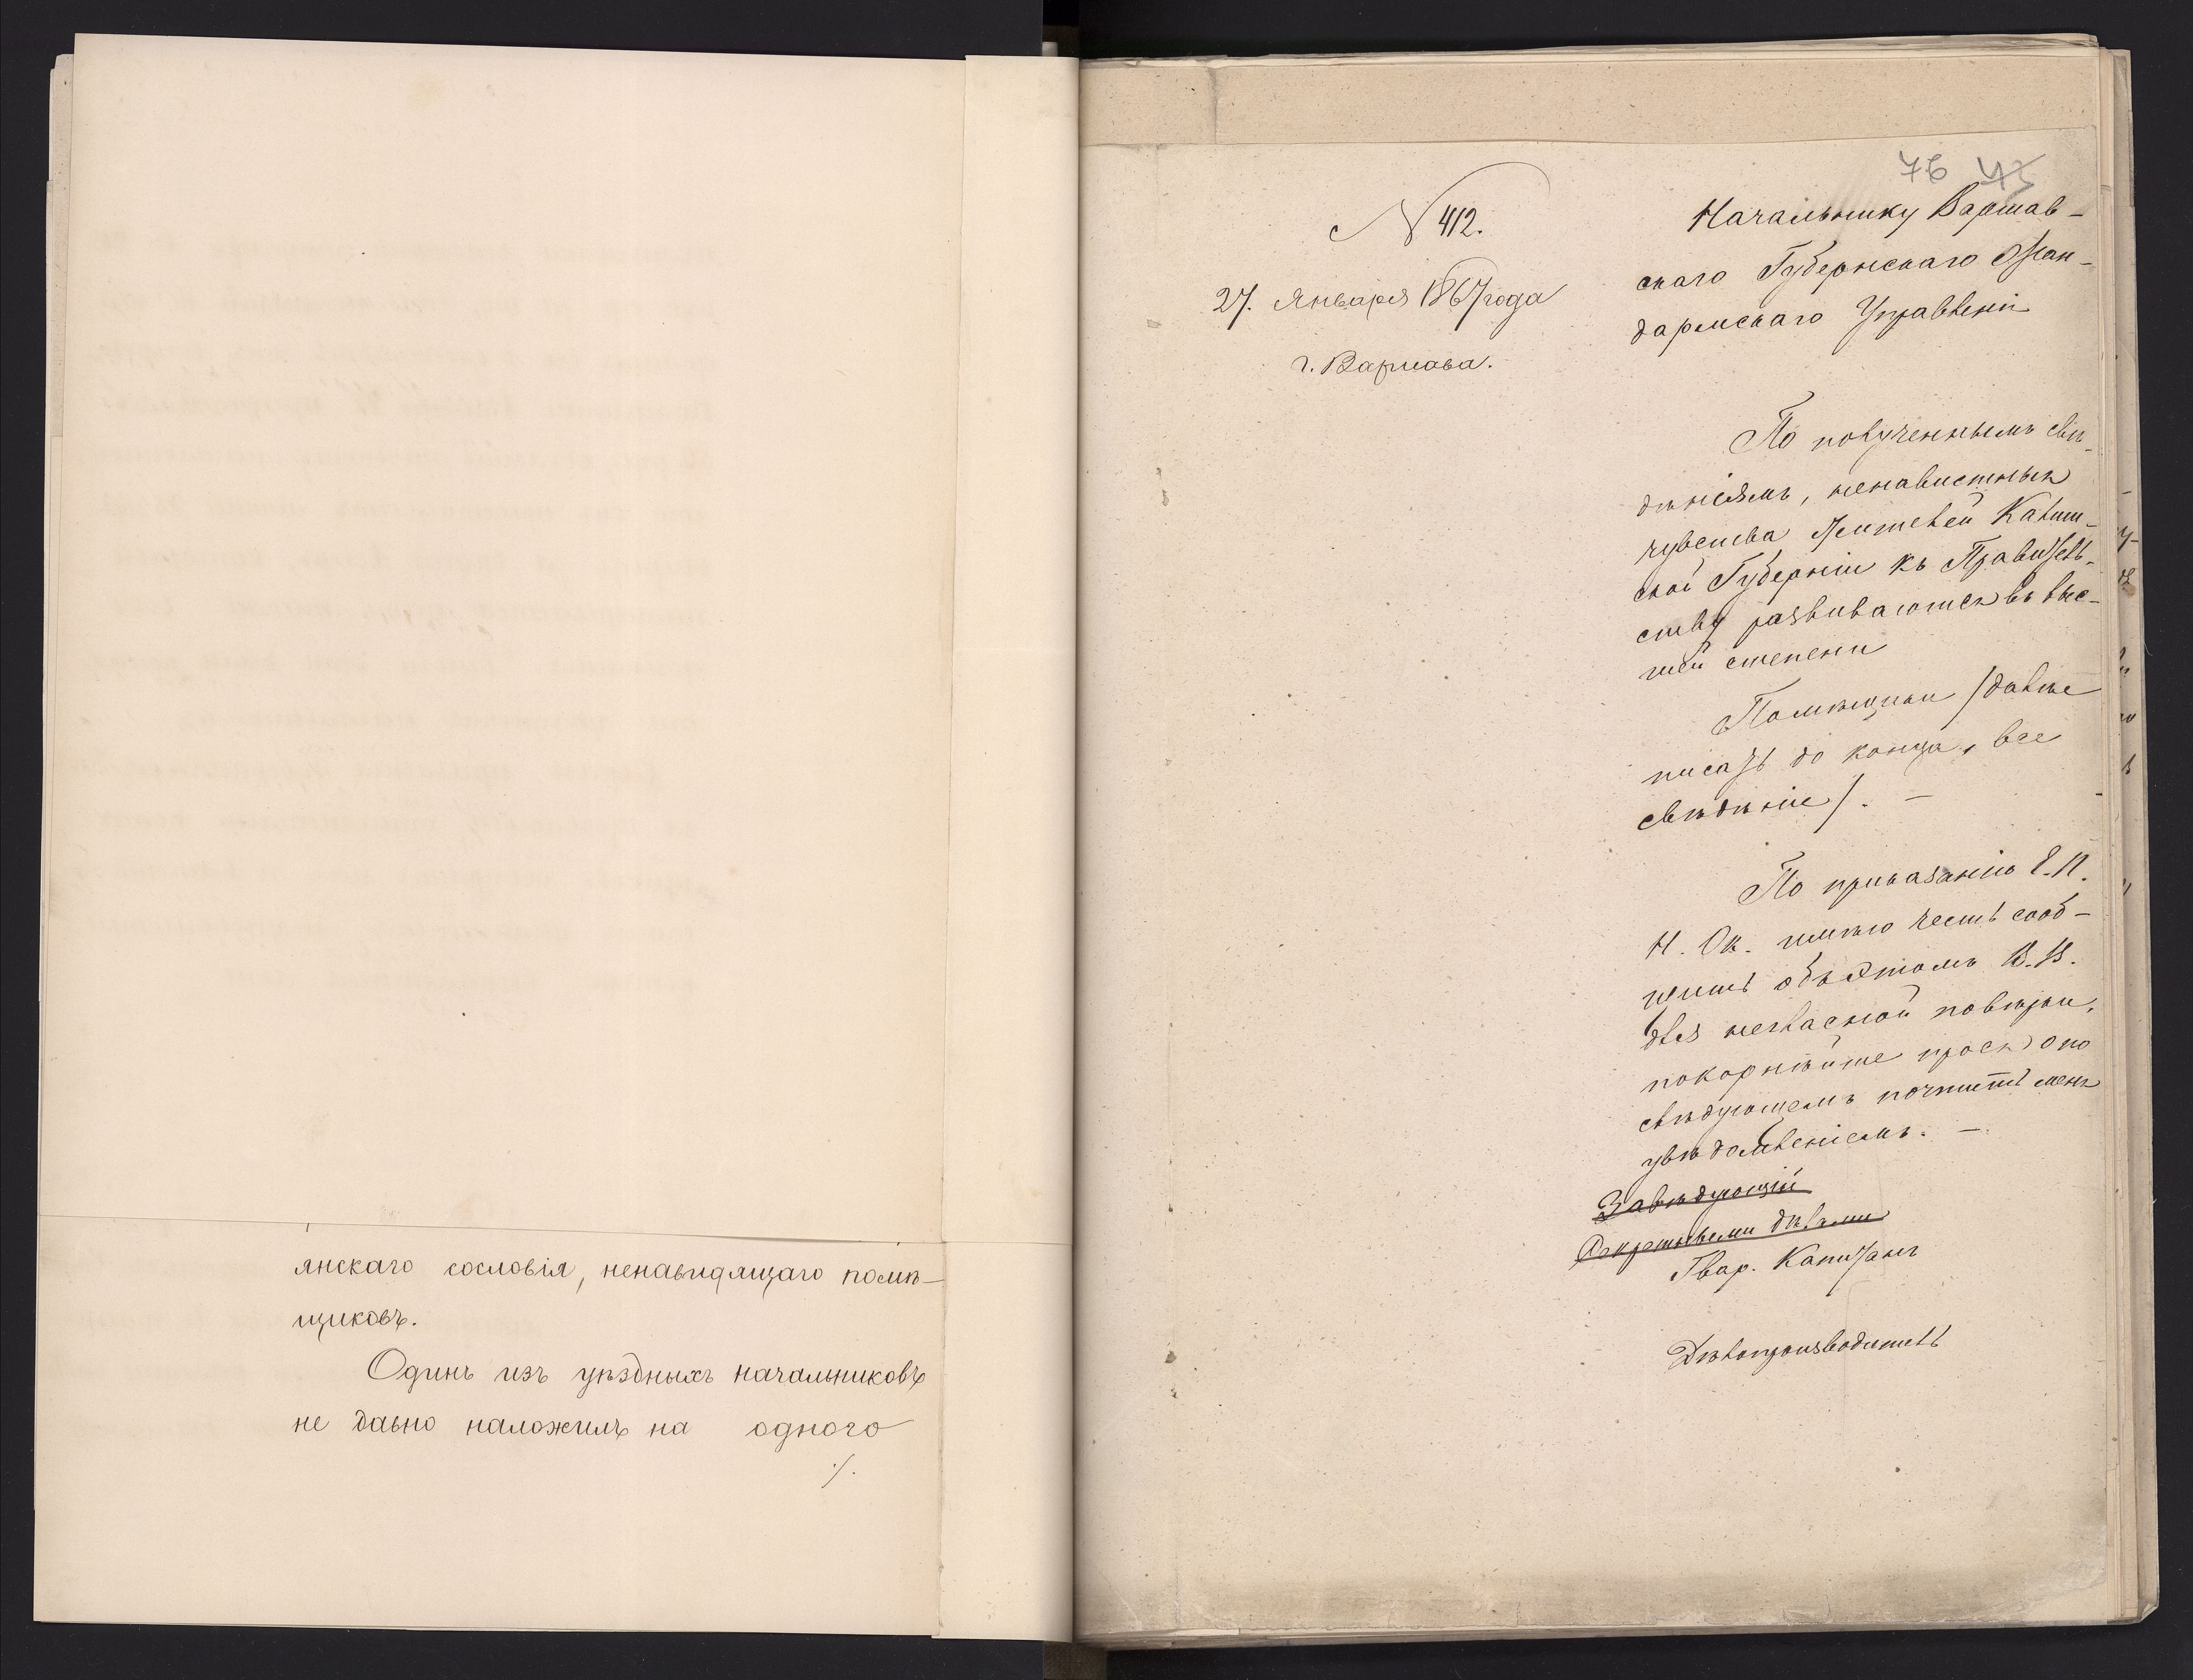 янскаго сословія, ненавидящаго помѣ-
щиковъ.
Одинъ изъ уѣздныхъ начальниковъ
не давно наложилъ на одного
./.
76 43
N 412.
27. Января 1867 года
г. Варшава.
Начальнику Варшав-
скаго Губернскаго Жан-
дармскаго Управленія
По полученнымъ свѣ-
дѣніямъ, ненавистныя
чувства жителей Калиш-
ской Губерніи къ Правитель-
ству развиваются въ выс-
шей степени
Помѣщики /далѣе
писать до конца, все
свѣдѣніе/. —
По приказанію Е.П.
Н. Ок. имѣю честь сооб-
щить объ этомъ В.В.
для негласной повѣрки,
покорнѣйше прося о по
слѣдующемъ почтить меня
увѣдомленіемъ. —
Завѣдующій
Секретными дѣлами
Гвар. Капитанъ
Дѣлопроизводитель